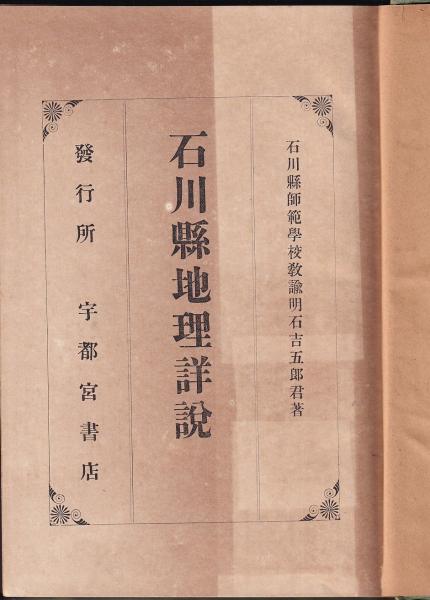 石川縣師範學校敎諭明石吉五郎君著
石川縣地理詳說
發行所　宇都宮書店